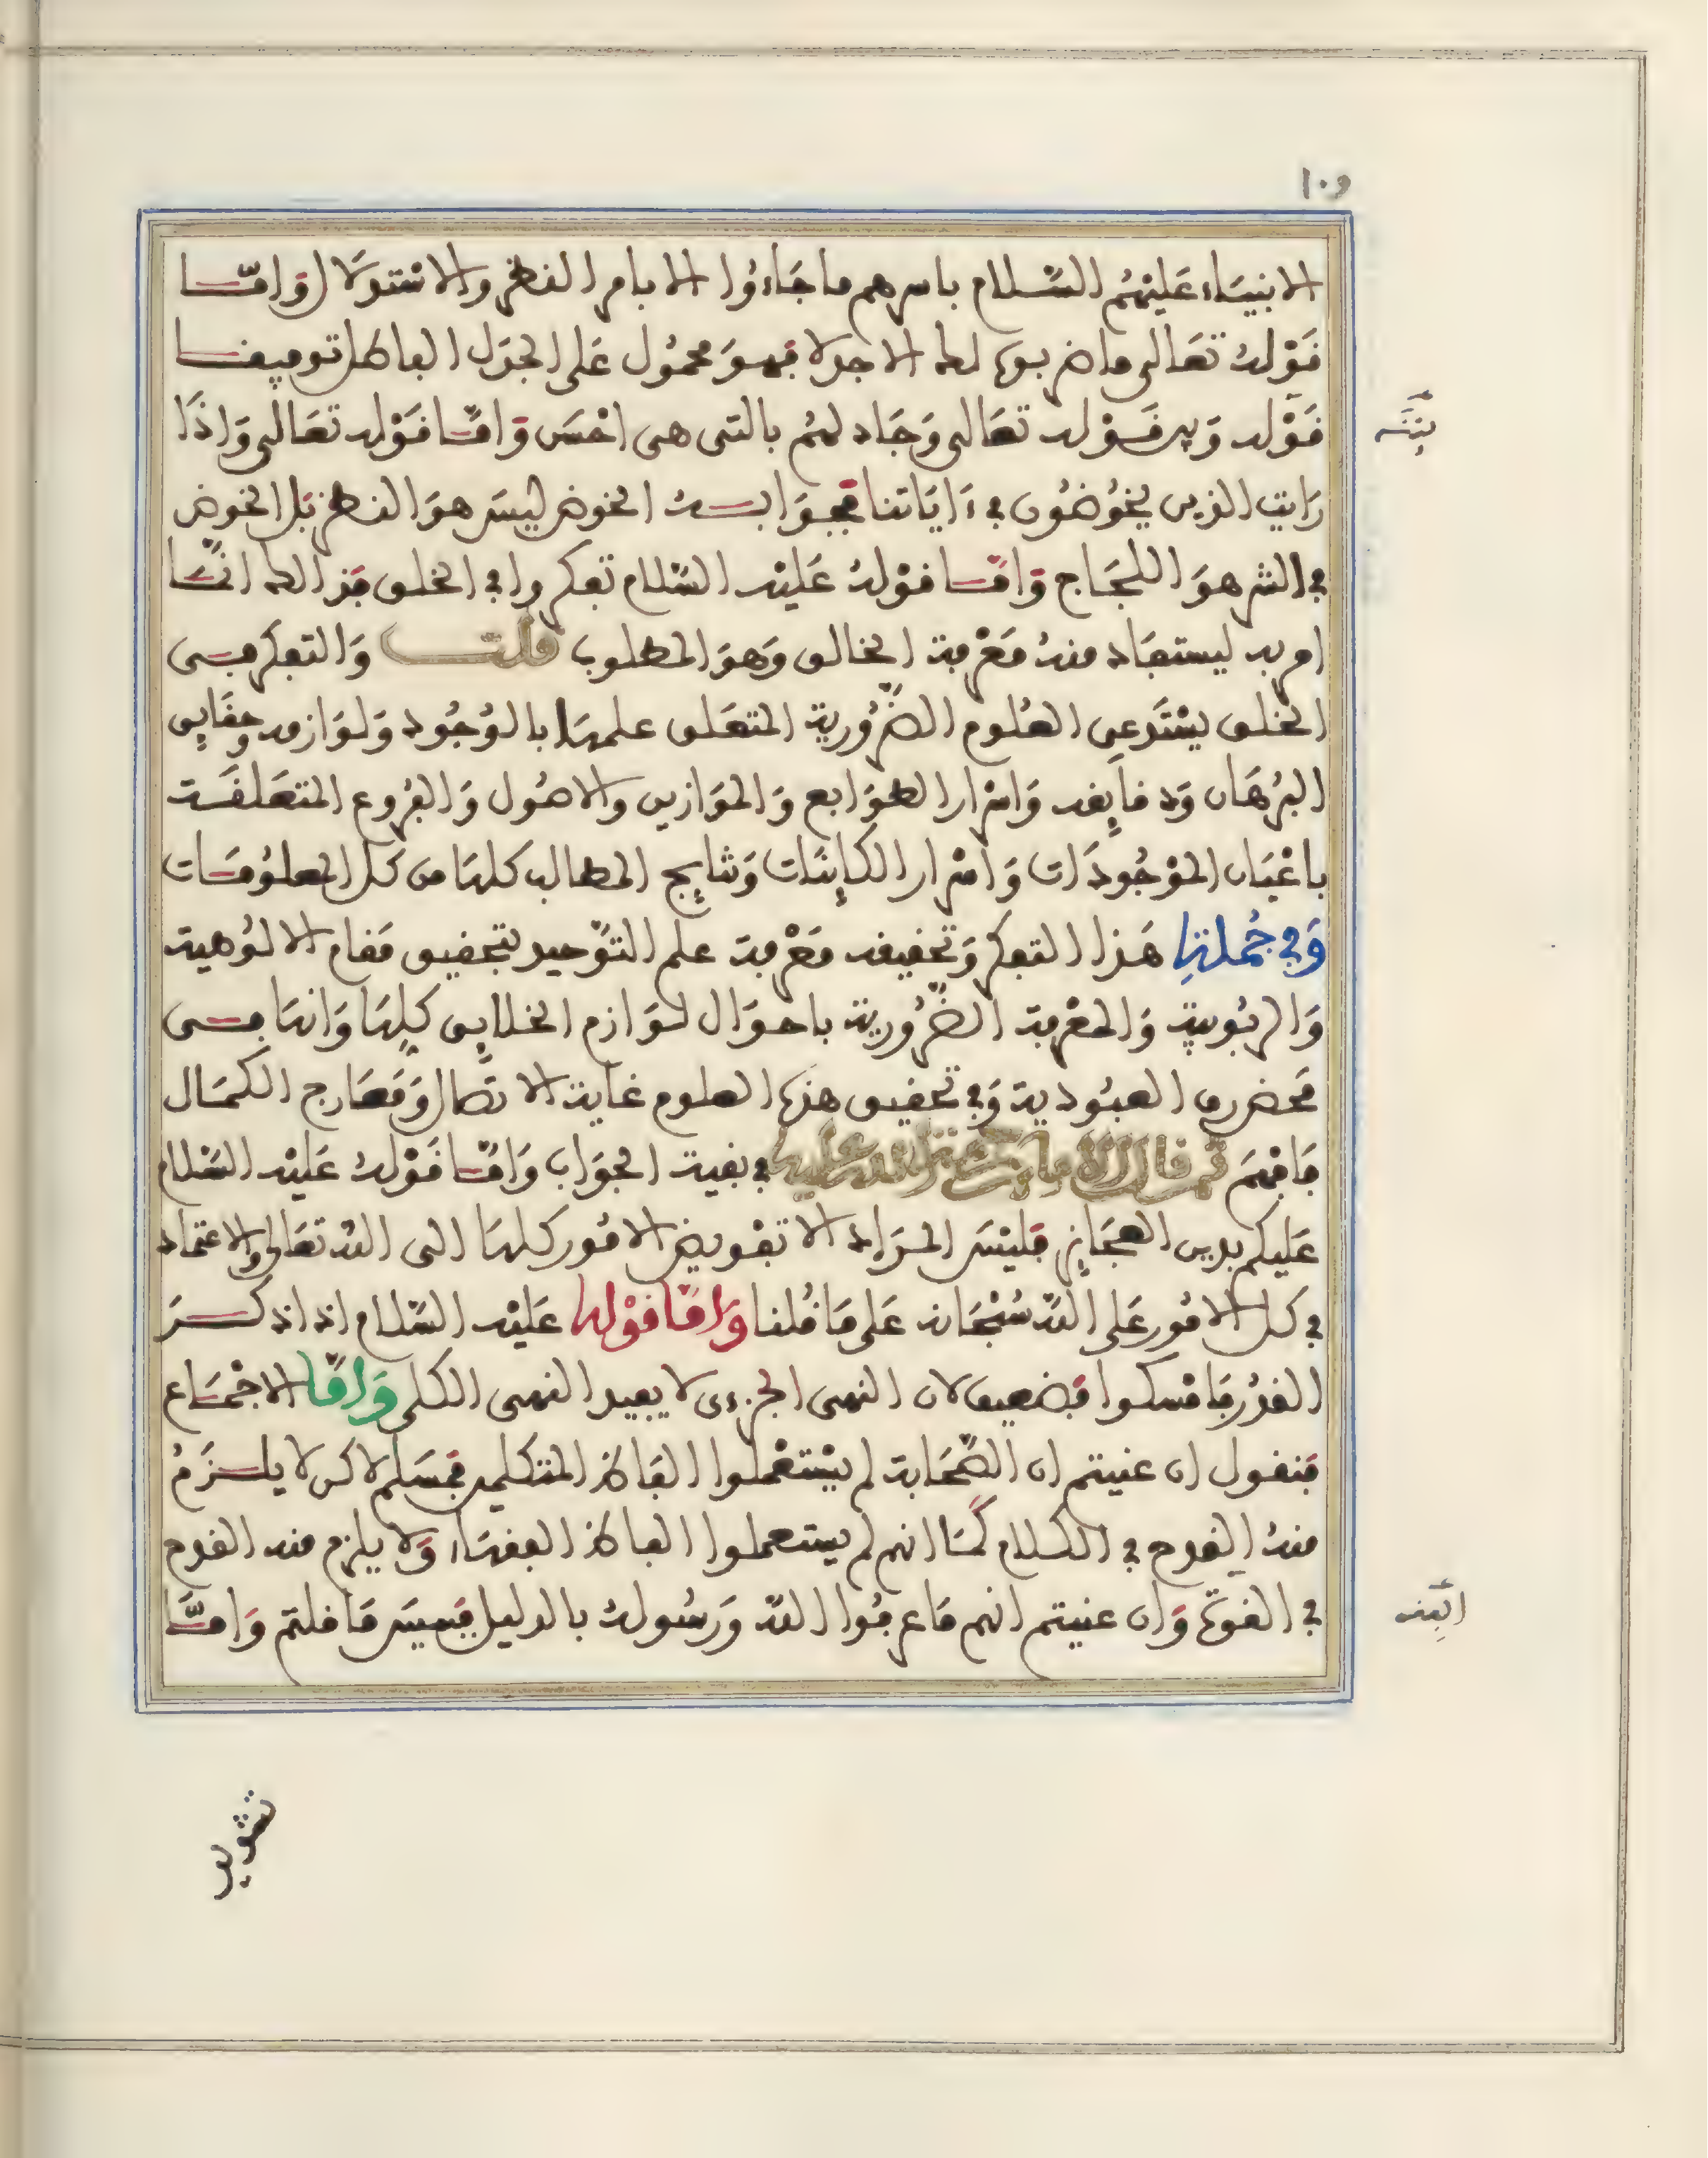 ١٠٩
الانبياء عَليْهُم السَّلام باسرهم ما جَاءُوا الا بامر النظر والاستدلال وَامَّا
قَوْلهُ تعَالى ما ضربوه لك الا جدلا فهوَ محمُول عَلى الجدَل الباطل توفيقا
بيْنَهُ
قَوْله وَبين قَوْله تعَالى وَجَادلهُم بالتى هى احْسَن وَامَّا قَوْله تعَالى وَاذَا
رَايت الذين يخُوضُون في ءَايَاتنا فجوَابهُ الخوض ليسَ هوَ النظر بَل الخوض
في الشر هوَ اللجَاج وَامَّا قوْلهُ عَليْه السَّلام تفكروا في الخلق فذالك انَّمَا
امر به ليستفَاد منهُ مَعْرفة الخالق وَهوَ المطلوب قلت وَالتفكر فى
الخلق يسْتَدعى العُلوم الضَّرُورية المتعَلق علمهَا بالوُجُود وَلوَازمه وحقَايق
البُرهَان وَدقايقه وَاسْرار الطوَابع وَالموَازين والاصُول وَالفرُوع المتعَلقَة
باعْيَان الموْجُودَات وَاسْرار الكاينَات وَنتايج المطالب كلهَا من كل المعلُومَات
وَفي جُملة هَذا التفكر وَتحقيقه مَعْرفة علم التوْحيد بتحقيق مَقام الالوُهية
وَالربُوبية وَالمعْرفة الضَّرُورية باحوَال لوَازم الخلايق كلهَا وَانهَا فى
مَحض رق العبُودية وَفي تحقيق هذه العلوم غاية الاتصَال وَمَعَارج الكمَال
فافهَم ثم قال الامام رحمة الله عليه في بقية الجوَاب وَامَّا قَوْلهُ عَليْه السَّلام
عَليكم بدين العجَايز فليْسَ المرَاد الا تفْويض الامُور كلهَا الى الله تعَالى والاعتماد
في كل الامُور عَلى الله سُبْحَانه عَلى مَا قُلنا وَامَّا قوْله عَليْه السَّلام اذا ذكرَ
القدَر فامْسكوا فضعيف لان النهى الجزءى لا يفيد النهى الكلى وَامَّا الاجْمَاع
فنقول ان عنيتم ان الصَّحَابة لم يسْتعْملوا الفاظ المتكلمين فمسَلم لاكن لا يلزَمُ
منهُ القدح في الكلام كَمَا انهم لم يستعملوا الفاظ الفقهَاء وَلا يلزم منه القدح
ابفقه
في الفقه وَان عنيتم انهم مَا عرفُوا الله وَرسُولهُ بالدليل فبيسَ مَا قلتم وَامَّا
تشويه